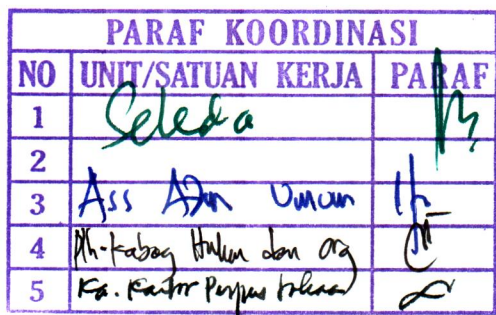 PARAF KOORDINASI
NO UNIT/SATUAN KERJA PARAF
1 Sekda
2
3 Ass Adm Umum
4 Plh. Kabag Hukum dan Org
5 Ka. Kantor Perpus